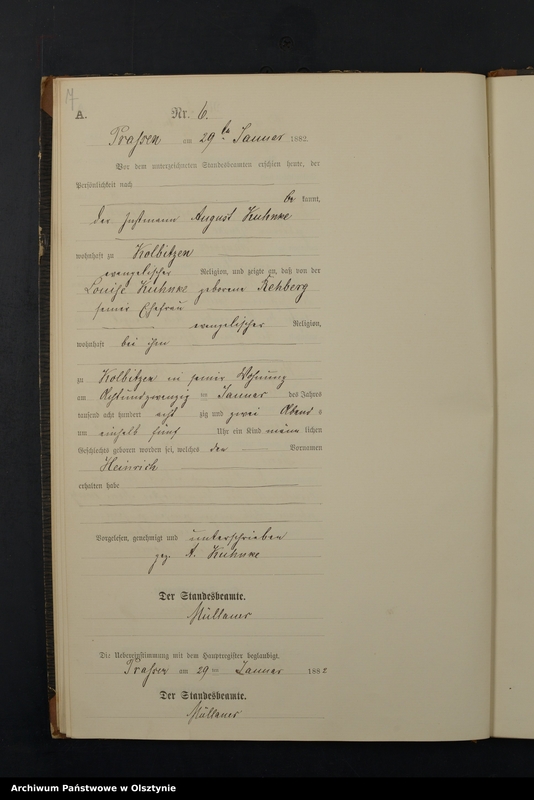 17
A.
Nr. 6.
Prassen am 29ten Januar 1882.
Vor dem unterzeichneten Standesbeamten erschien heute, der
Persönlichkeit nach
be kannt,
der Instmann August Kuhnke
wohnhaft zu Kolbitzen
evangelischer Religion, und zeigte an, daß von der
Louise Kuhnke geborene Rehberg
seiner Ehefrau
evangelischer Religion,
wohnhaft bei ihm
zu Kolbitzen in seiner Wohnung
am Achtundzwanzig ten Januar des Jahres
tausend acht hundert acht zig und zwei Abend s
um einhalb fünf Uhr ein Kind männ lichen
Geschlechts geboren worden sei, welches den Vornamen
Heinrich
erhalten habe
Vorgelesen, genehmigt und unterschrieben
gez. A. Kuhnke
Der Standesbeamte.
Die Uebereinstimmung mit dem Hauptregister beglaubigt.
Prassen am 29 ten Januar 1882
Der Standesbeamte.
Archiwum Państwowe w Olsztynie